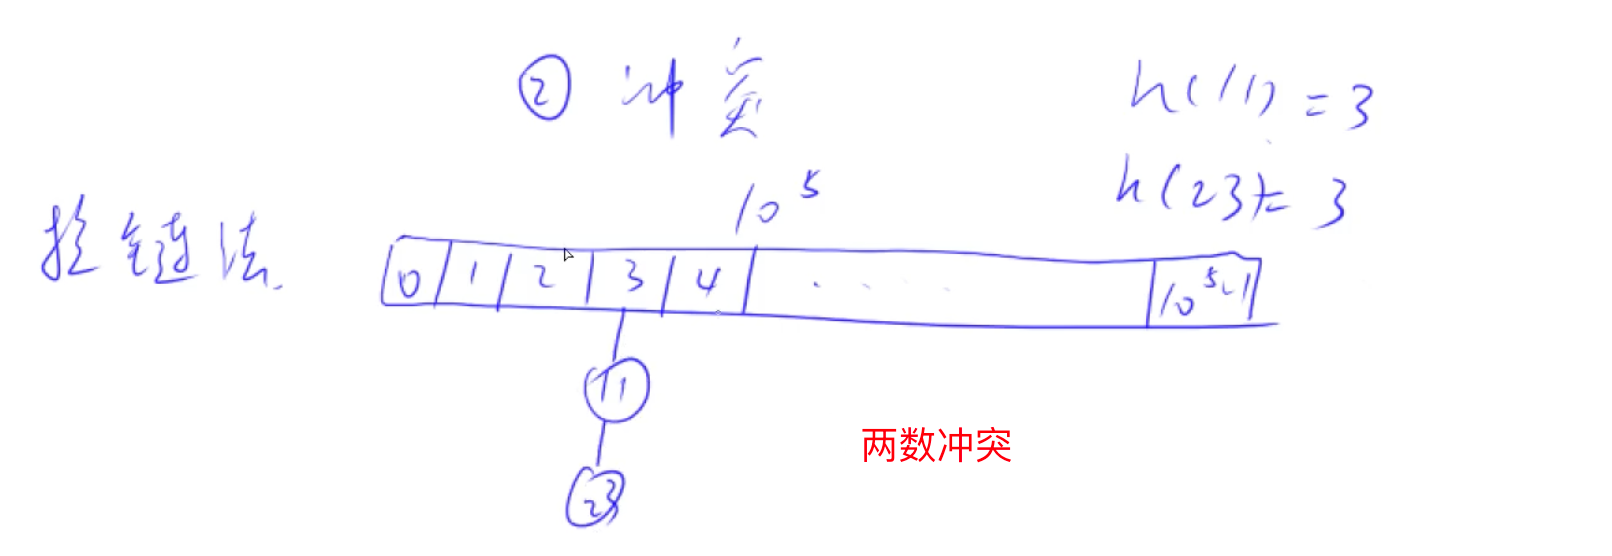 ② 冲突
h(11) = 3
h(23) = 3
拉链法
10⁵
0 1 2 3 4 .... 10⁵-1
11
23
两数冲突